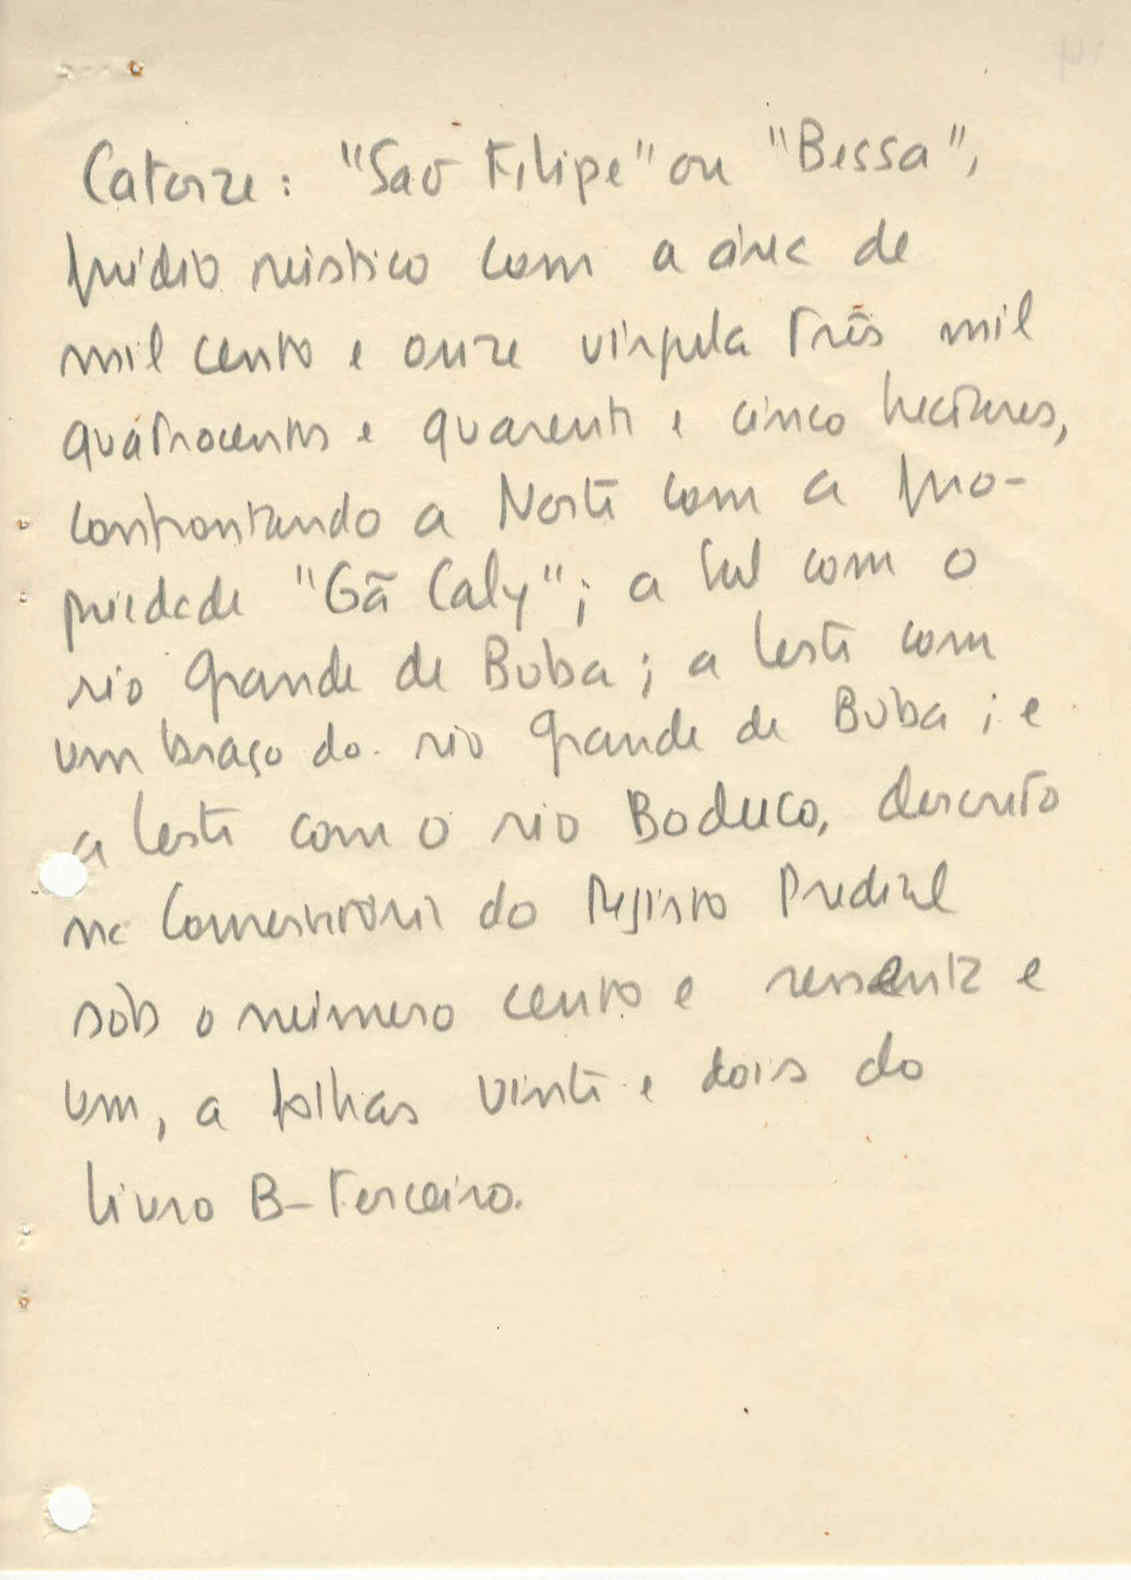 Catorze: "São Filipe" ou "Bessa",
prédio rústico com a área de
mil cento e onze vírgula três mil
quatrocentos e quarenta e cinco hectares,
confrontando a Norte com a pro-
priedade "Gã Caly"; a Sul com o
rio Grande de Buba; a leste com
um braço do rio Grande de Buba; e
a leste com o rio Boduco, descrito
na Conservatória do Registo Predial
sob o número cento e sessenta e
um, a folhas vinte e dois do
livro B-terceiro.